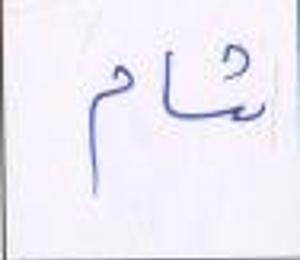 شام